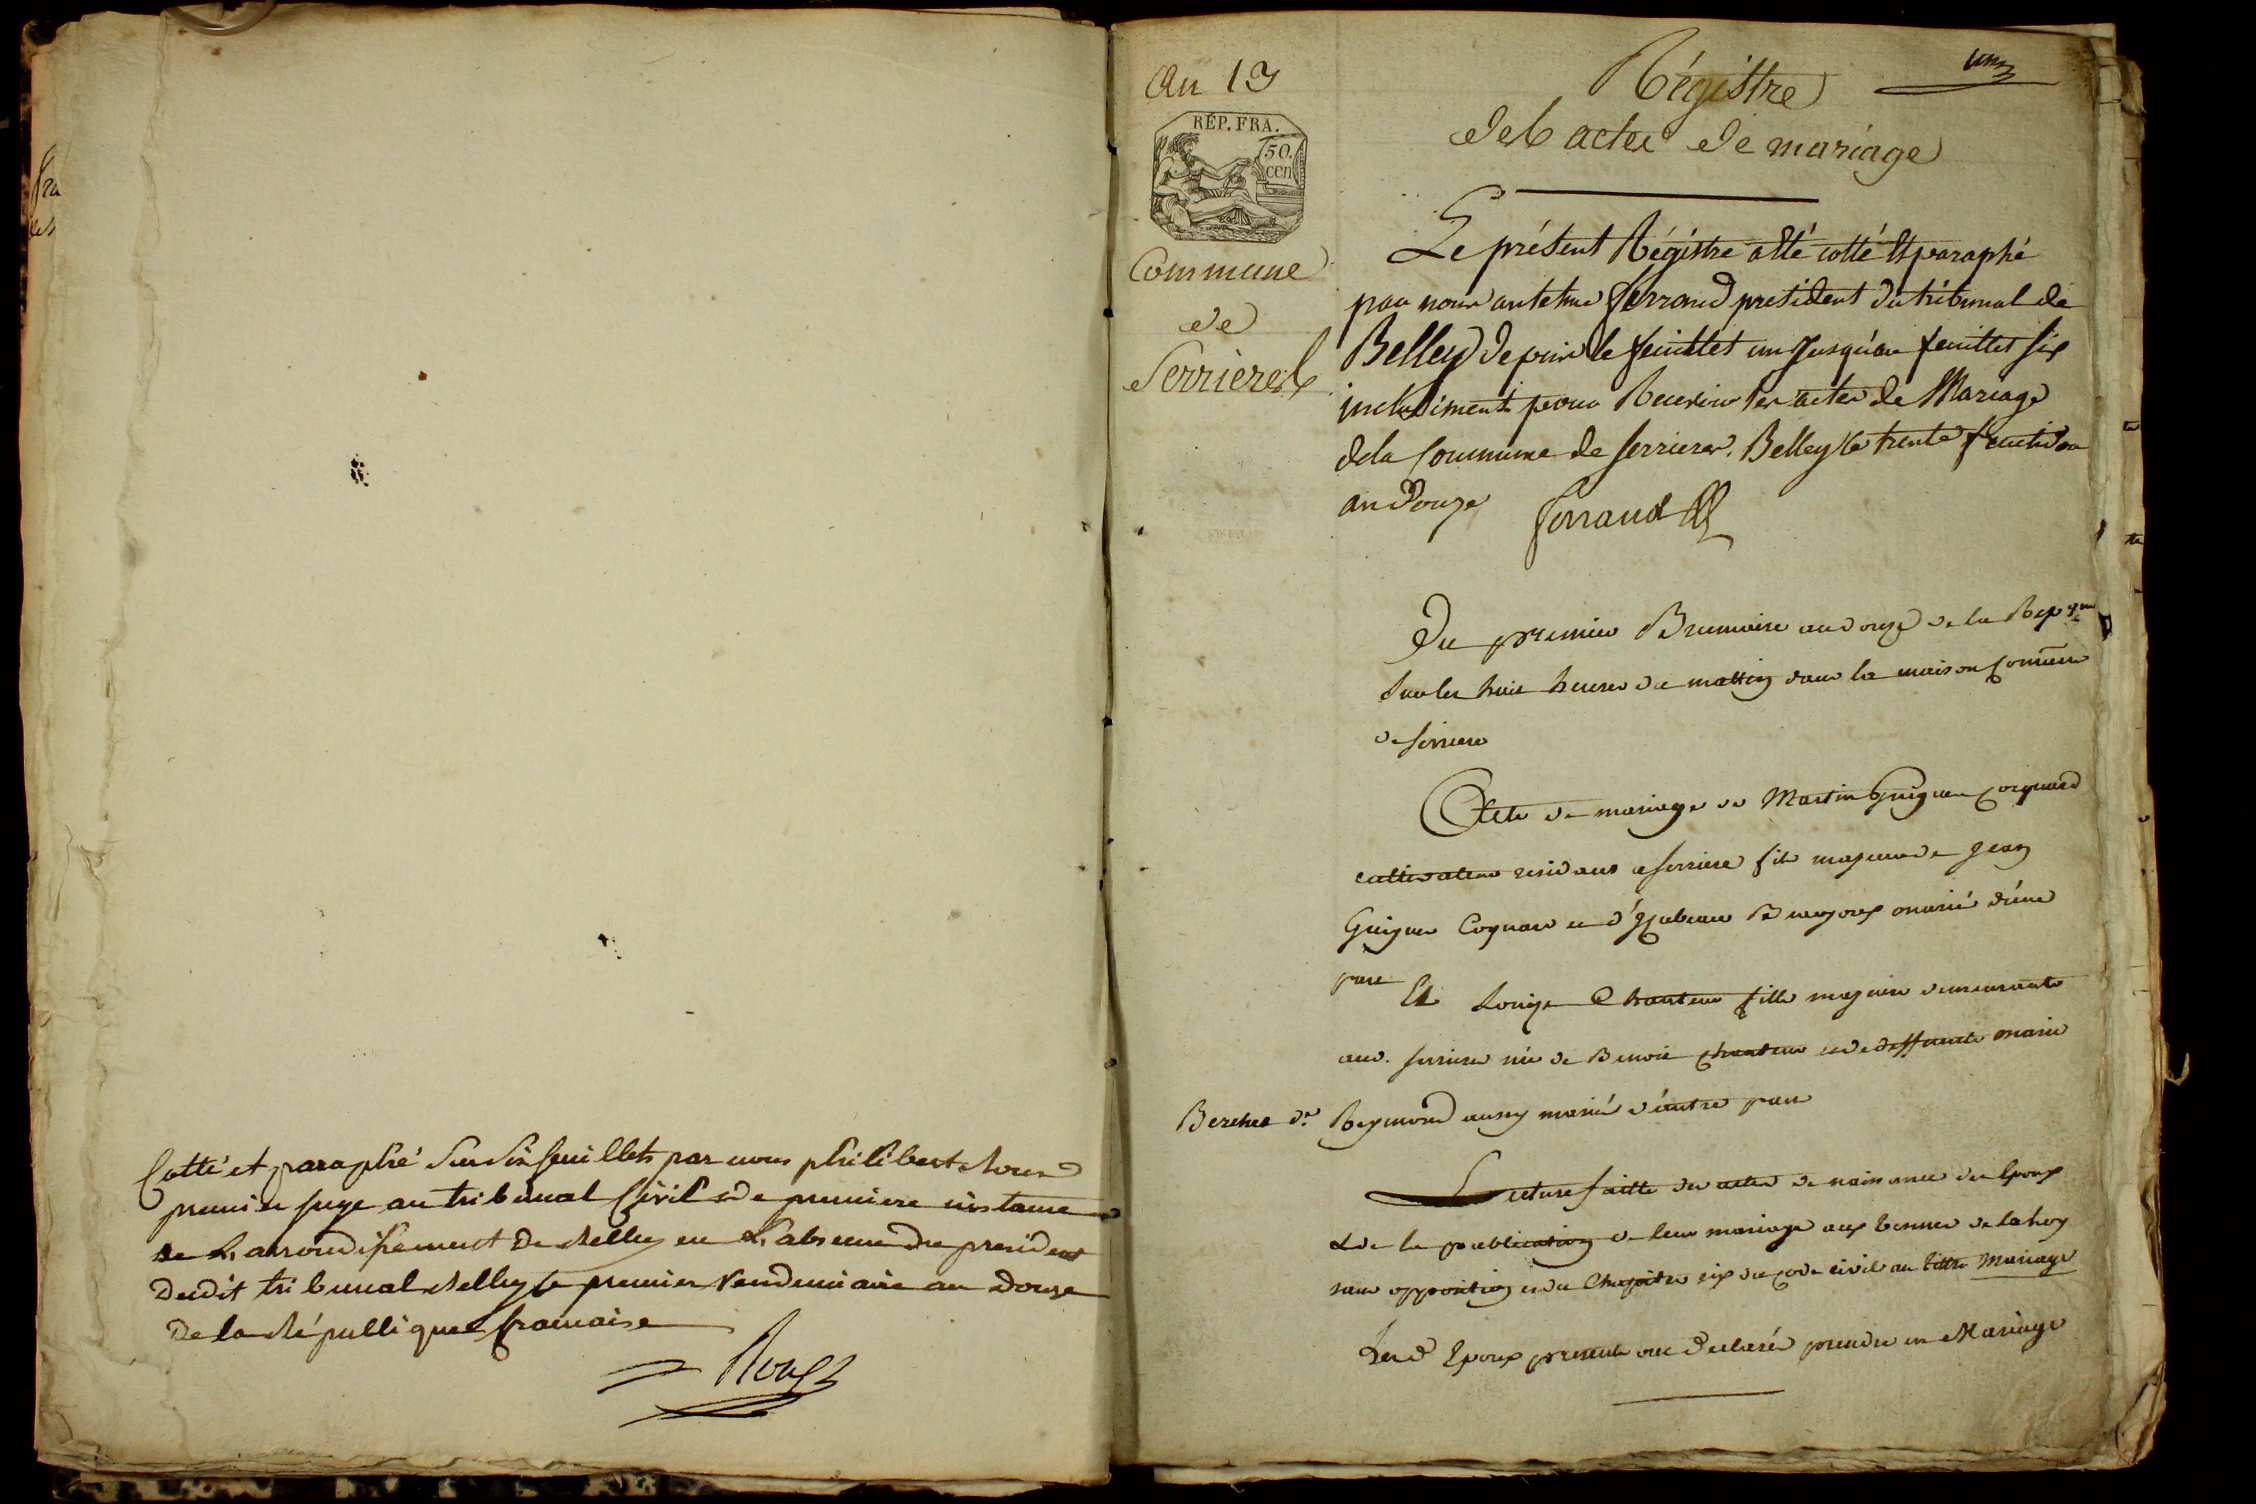 Cotté et paraphé Sur Six feuillets par nous philibert Roux
premier juge au tribunal Civil de premiere instance
de L'arrondissement de Belley en L'absence du president
dudit tribunal Belley le premier Vendemiaire an Douze
De la République francaise
An 13
REP. FRA.
50.
cen
Commune
de
Serrieres
un
Régistre
des actes de mariage
Le présent Régistre a été cotté et paraphé
par nous anthelme ferrand president du tribunal de
Belley depuis le feuillet un jusqu'au feuillet six
inclusiment pour Recevoir les actes de Mariage
de la Commune de serrieres. Belley le trente fructidor
an Douze ferrand
Du premier Brumaire an douze de la Rep
Sur les huit heures du mattin dans la maison Comune
de serriere
Acte de mariage de Martin Guigue Coquard
cultivateur residant a serriere fils majeur de jean
Guigue Coquard et d' marié d'une
part Et Louise Chanteur fille majeure demeurante
aud. serriere née de Benoit Chanteur et de deffunte marie
Berthet dr. Reymond aussy marié d'autre part
Lecture faitte des actes de naissance des Epoux
& de la publication de leur mariage aux termes de la loy
sans opposition et du Chapitre six du code civil au tittre Mariage
Les d Epoux presents ont declarés prendre en Mariage